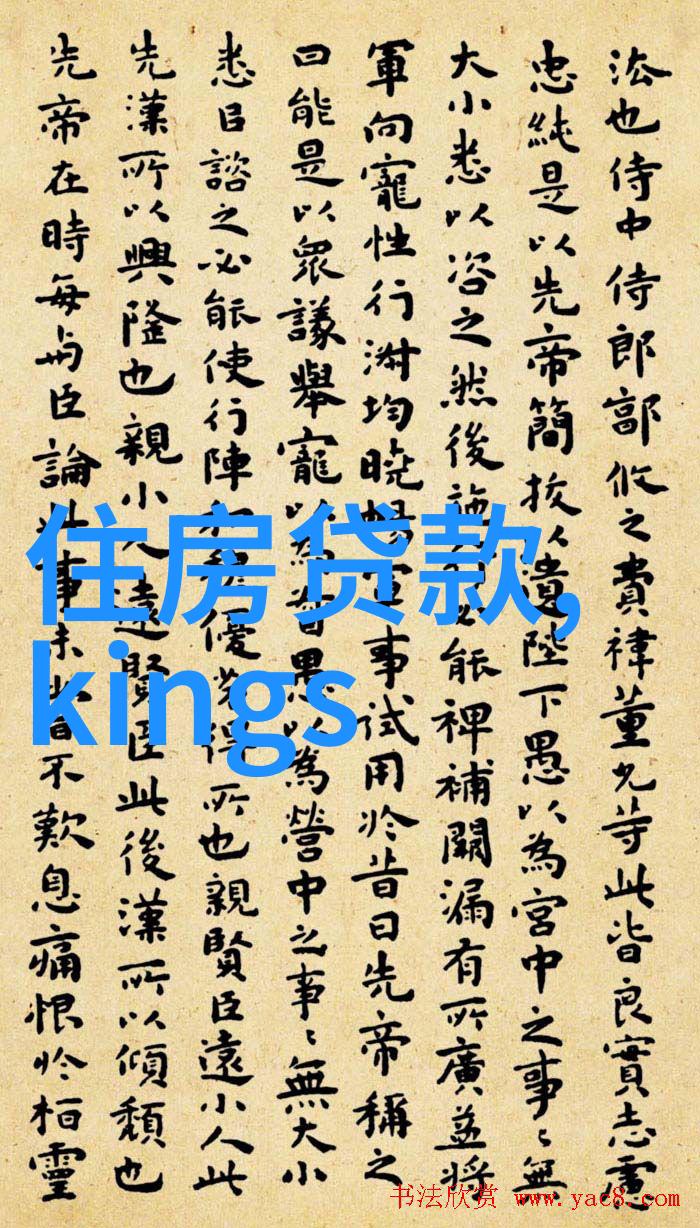 法也侍中侍郎郭攸之費禕董允等此皆良實志慮
忠純是以先帝簡拔以遺陛下愚以為宮中之事〻無
大小悉以咨之然後施行必能裨補闕漏有所廣益將
軍向寵性行淑均曉暢軍事試用於昔日先帝稱之
曰能是以衆議舉寵以為督愚以為營中之事〻無大小
悉以諮之必能使行陣和穆優劣得所也親賢臣遠小人此
先漢所以興隆也親小人遠賢臣此後漢所以傾頹也
先帝在時每與臣論此事未嘗不歎息痛恨於桓靈
住房贷款,
kings
书法欣赏 www.yac8.com